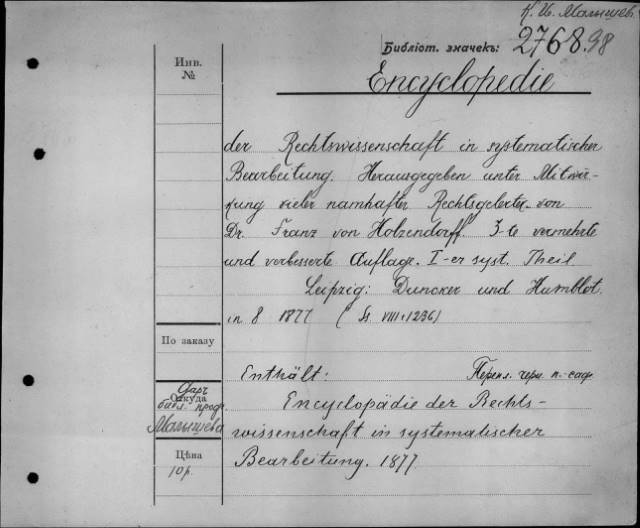 К. И. Малышев
Инв.
№
Библіот. значекъ: 2768.98
Encyclopedie
der Rechtswissenschaft in systematischer
Bearbeitung. Herausgegeben unter Mitwir-
kung vieler namhafter Rechtsgelerter von
Dr. Franz von Holzendorff. 3-te vermehrte
und verbesserte Auflage. I-er syst. Theil
Leipzig: Duncker und Humblot.
in 8 1877 (Ss. VIII+1236)
По заказу
Enthält: Перепл. черн. п.-саф.
Даръ
Откуда
библ. проф.
Малышева
Encyclopädie der Rechts-
wissenschaft in systematischer
Bearbeitung. 1877
Цѣна
10 р.